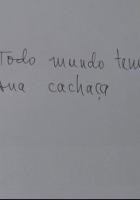 Todo mundo tem
sua cachaça